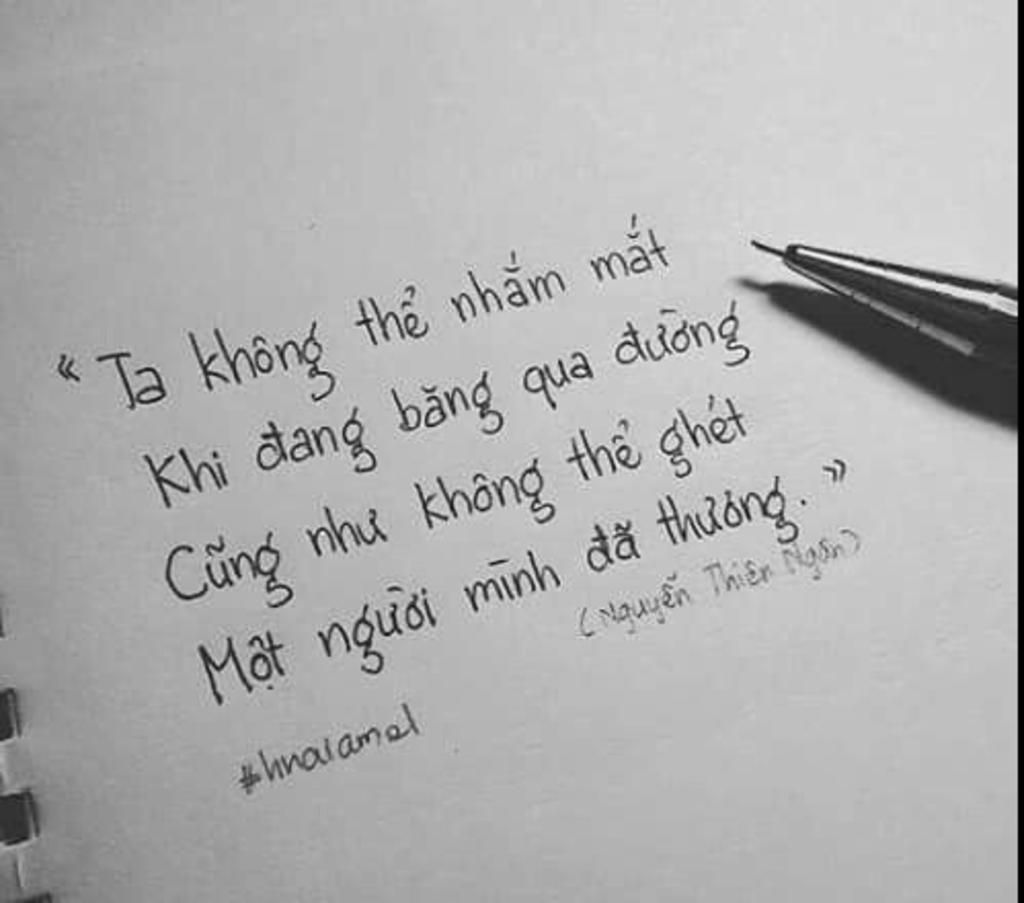 « Ta không thể nhắm mắt
Khi đang băng qua đường
Cũng như không thể ghét
Một người mình đã thương. »
(Nguyễn Thiên Ngân)
#hnaiamel